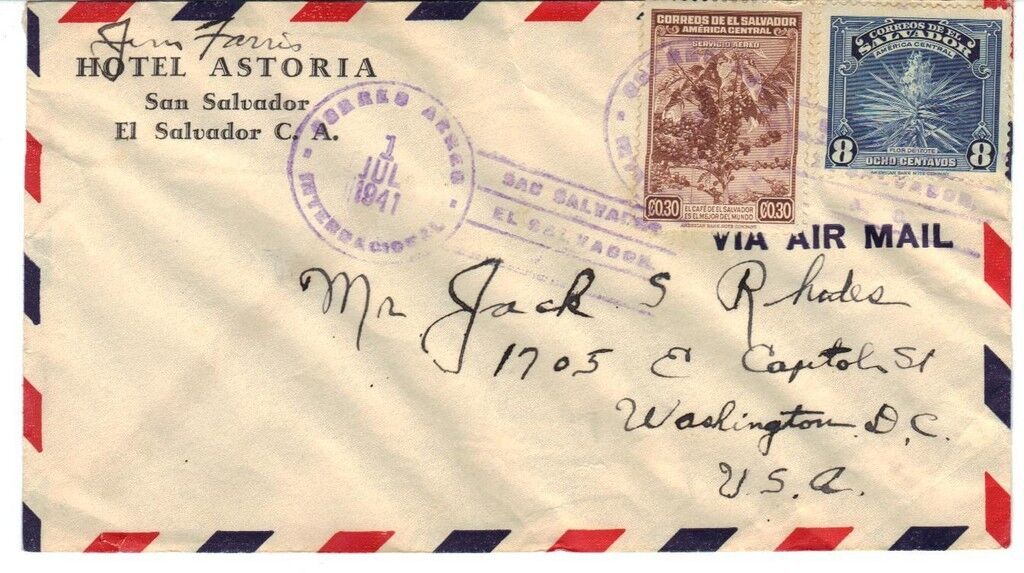 Jim Farris
HOTEL ASTORIA
San Salvador
El Salvador C. A.
CORREO AEREO
1
JUL
1941
INTERNACIONAL
SAN SALVADOR
EL SALVADOR
CORREOS DE EL SALVADOR
AMÉRICA CENTRAL
SERVICIO AÉREO
₡0.30 EL CAFÉ DE EL SALVADOR ₡0.30
ES EL MEJOR DEL MUNDO
AMERICAN BANK NOTE COMPANY
CORREOS DE EL
SALVADOR
AMÉRICA CENTRAL
FLOR DE IZOTE
8 OCHO CENTAVOS 8
AMERICAN BANK NOTE COMPANY
SALVADOR
VIA AIR MAIL
Mr Jack S Rhodes
1705 E Capitol St
Washington D.C.
U.S.A.